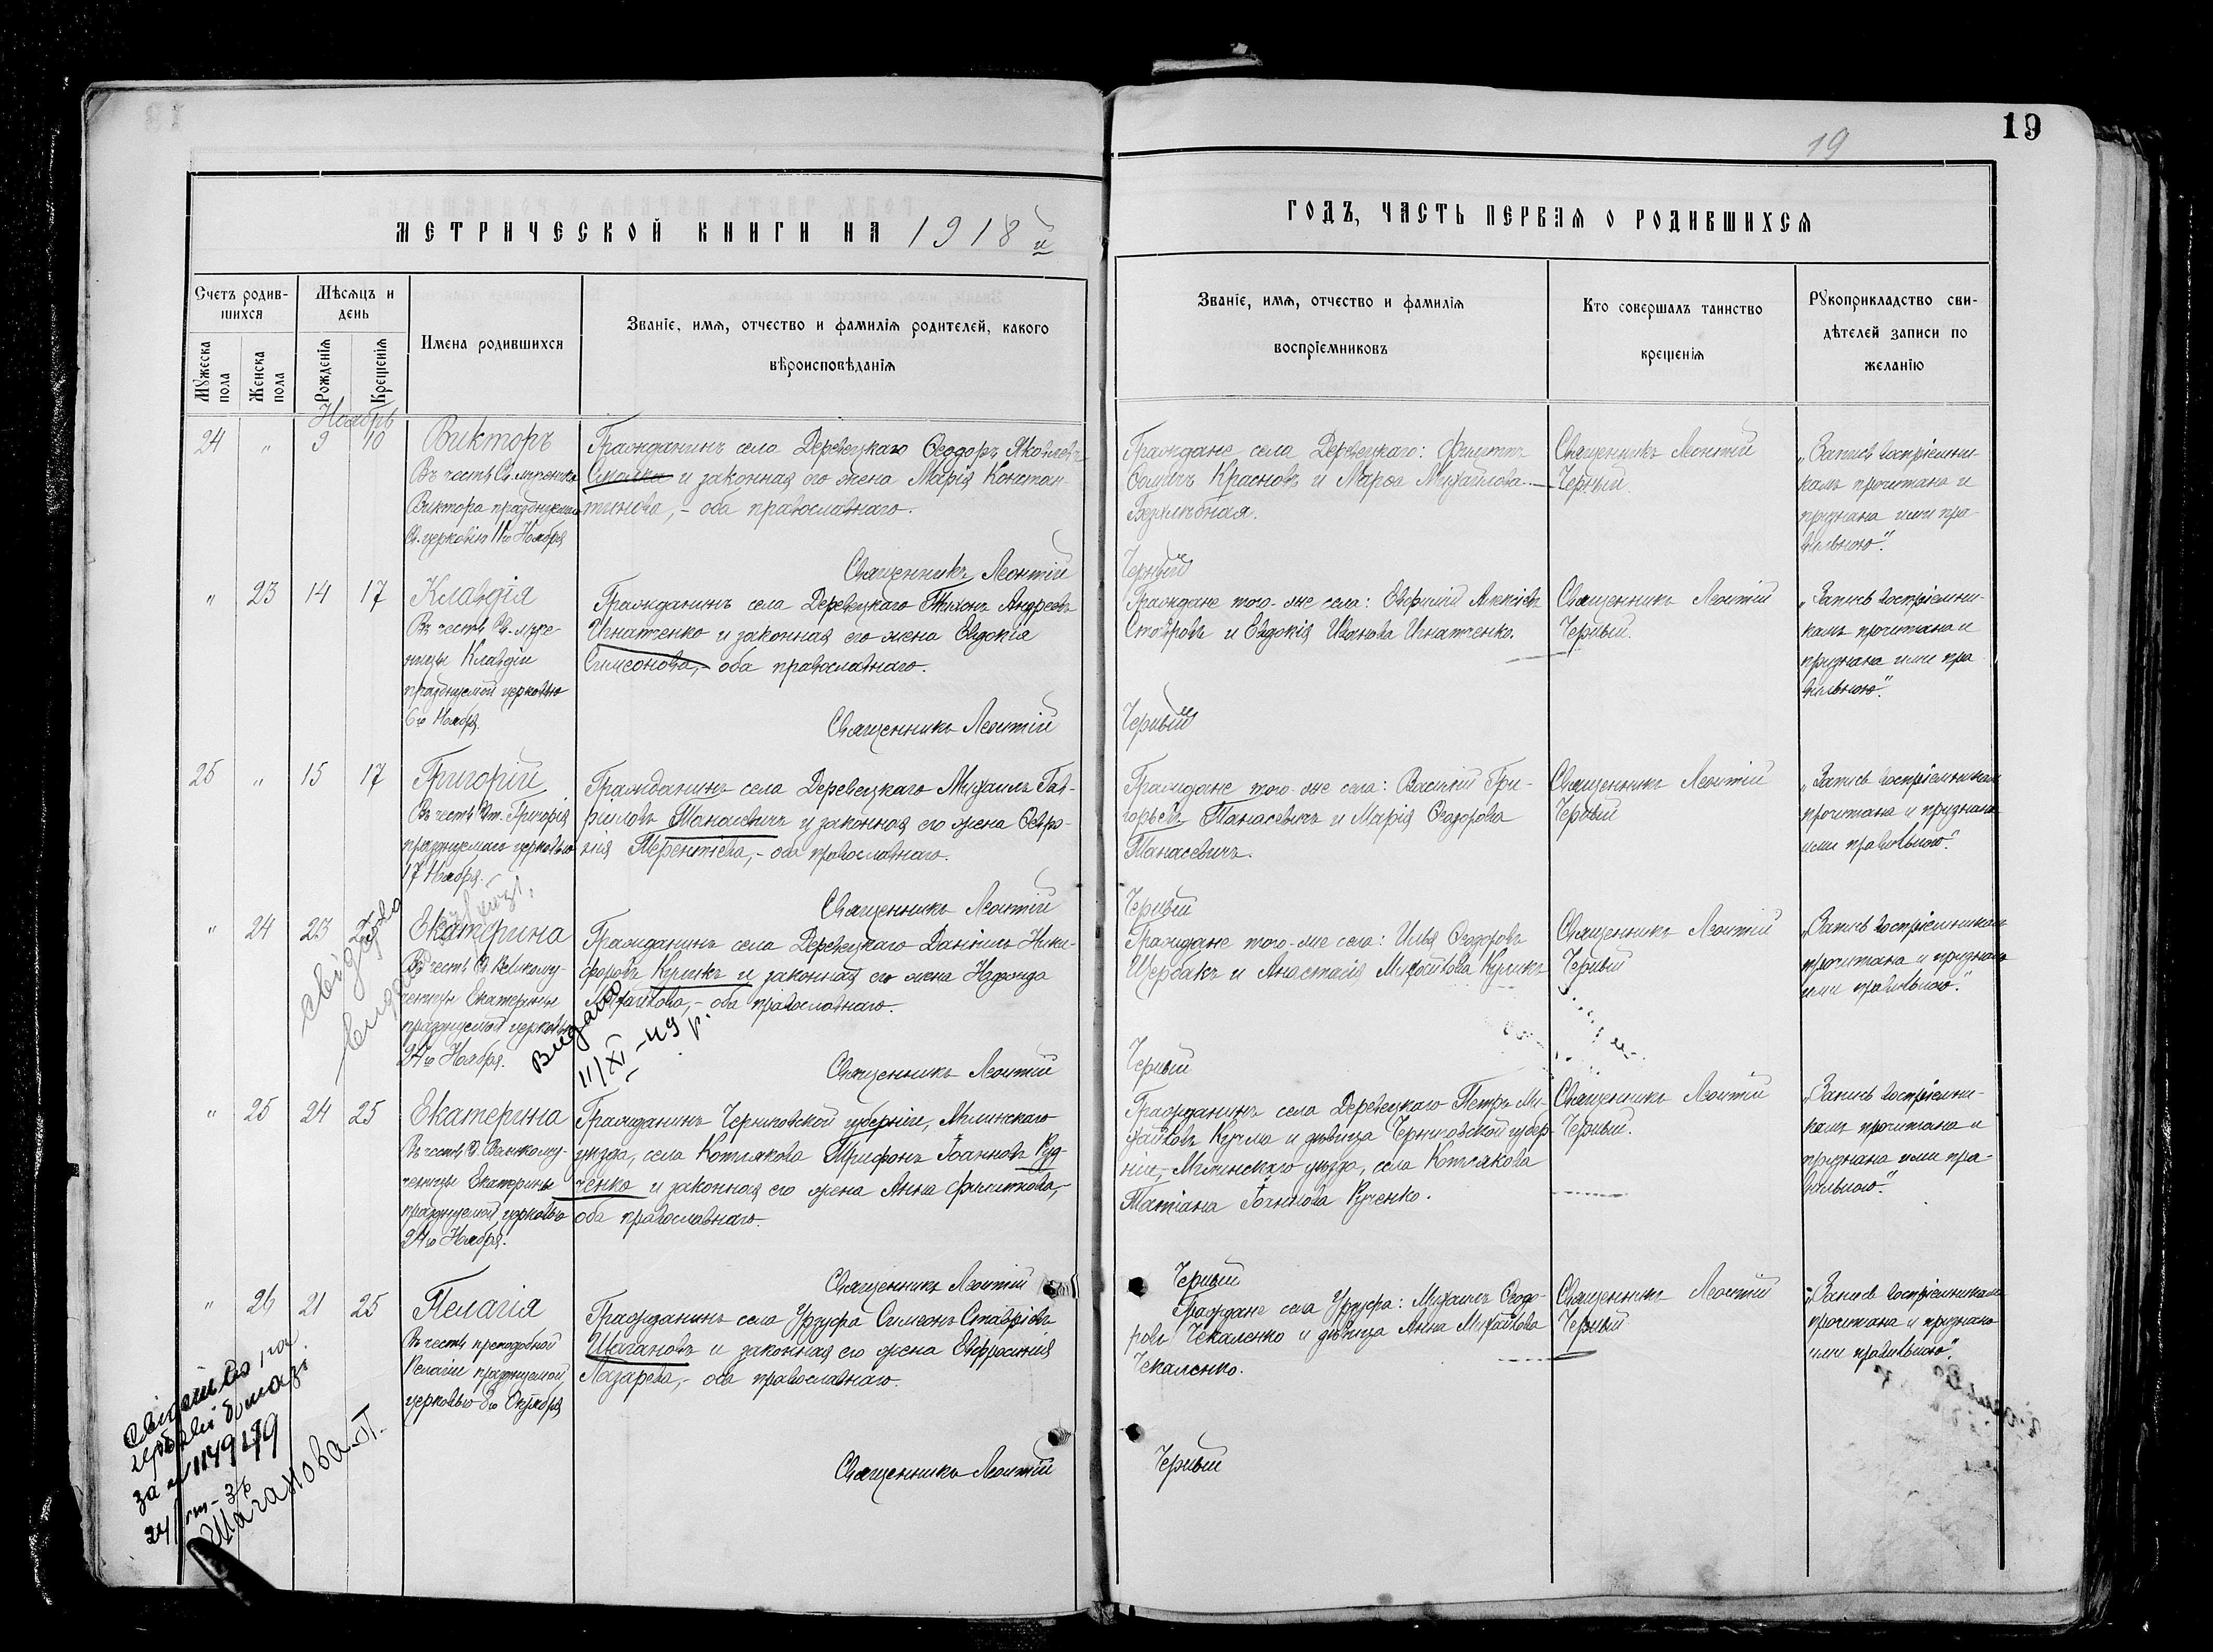 19
19
МЕТРИЧЕСКОЙ КНИГИ НА 1918 й
ГОДЪ, ЧАСТЬ ПЕРВАЯ О РОДИВШИХСЯ
Счетъ родив-
шихся
Мѣсяцъ и
день
Имена родившихся
Званіе, имя, отчество и фамилія родителей, какого
вѣроисповѣданія
Званіе, имя, отчество и фамилія
воспріемниковъ
Кто совершалъ таинство
крещенія
Рукоприкладство сви-
дѣтелей записи по
желанію
Мужеска
пола
Женска
пола
Рожденія
Крещенія
Ноябрь
24 " 9 10
Викторъ
Въ честь Св. мученика
Виктора празднуемаго
Св. церковію 11го Ноября
Гражданинъ села Деревецкаго Ѳеодоръ Яковлевъ
и законная его жена Марія Констан-
тинова, - оба православнаго.
Священникъ Леонтій
Граждане села Деревецкаго: Филиппъ
Красновъ и Марѳа Михайлова
Безхлѣбная.
Черный
Священникъ Леонтій
Черный.
„Запись воспріемни-
камъ прочитана и
признана ими пра-
вильною".
" 23 14 17
Клавдія
Въ честь Св. муче-
ницы Клавдіи
празднуемой церковью
6го Ноября.
Гражданинъ села Деревецкаго Тихонъ Андреевъ
Игнатченко и законная его жена Евдокія
Симеонова, - оба православнаго.
Священникъ Леонтій
Граждане того-же села: Евфимій Алексіевъ
и Евдокія Иванова Игнатченко.
Черный
Священникъ Леонтій
Черный.
„Запись воспріемни-
камъ прочитана и
признана ими пра-
вильною".
25 " 15 17
Григорій
Въ честь Григорія
празднуемаго церковью
17 Ноября.
Гражданинъ села Деревецкаго Михаилъ Гав-
ріиловъ Танасевичъ и законная его жена Ѳевро-
нія Терентіева, - оба православнаго.
Священникъ Леонтій
Граждане того-же села: Василій Гри-
горьевъ Танасевичъ и Марія Ѳеодорова
Танасевичъ.
Черный
Священникъ Леонтій
Черный
„Запись воспріемникамъ
прочитана и признана
ими правильною".
" 24 23 25
Екатерина
Въ честь Св. Великому-
ченицы Екатерины
празднуемой церковью
24го Ноября.
Гражданинъ села Деревецкаго Даніилъ Ники-
форовъ Куликъ и законная его жена Надежда
Михайлова, - оба православнаго.
Видано
11/XI-49 р.
Священникъ Леонтій
Граждане того-же села: Илья Ѳеодоровъ
Щербакъ и Анастасія Михайлова Куликъ
Черный
Священникъ Леонтій
Черный
„Запись воспріемникамъ
прочитана и признана
ими правильною".
" 25 24 25
Екатерина
Въ честь Св. Великому-
ченицы Екатерины
празднуемой церковью
24го Ноября.
Гражданинъ Черниговской губерніи, Мглинскаго
уѣзда, села Котлякова Трифонъ Іоанновъ Руд-
ченко и законная его жена Анна Филиппова, -
оба православнаго.
Священникъ Леонтій
Гражданинъ села Деревецкаго Петръ Ми-
хайловъ Кучма и дѣвица Черниговской губер-
ніи, Мглинскаго уѣзда, села Котлякова
Татіана Іоаннова
Черный
Священникъ Леонтій
Черный.
„Запись воспріемни-
камъ прочитана и
признана ими пра-
вильною".
" 26 21 25
Пелагія
Въ честь преподобной
Пелагіи празднуемой
церковью 8го Октября
Гражданинъ села Урзуфа Симеонъ Ставріевъ
Шагановъ и законная его жена Евфросинія
Лазарева, - оба православнаго.
Священникъ Леонтій
Граждане села Урзуфа: Михаилъ Ѳеодо-
ровъ Чекаленко и дѣвица Анна Михайлова
Чекаленко.
Черный
Священникъ Леонтій
Черный
„Запись воспріемникамъ
прочитана и признана
ими правильною".
гербовій бумазі
за № 1149179
Шаганова П.